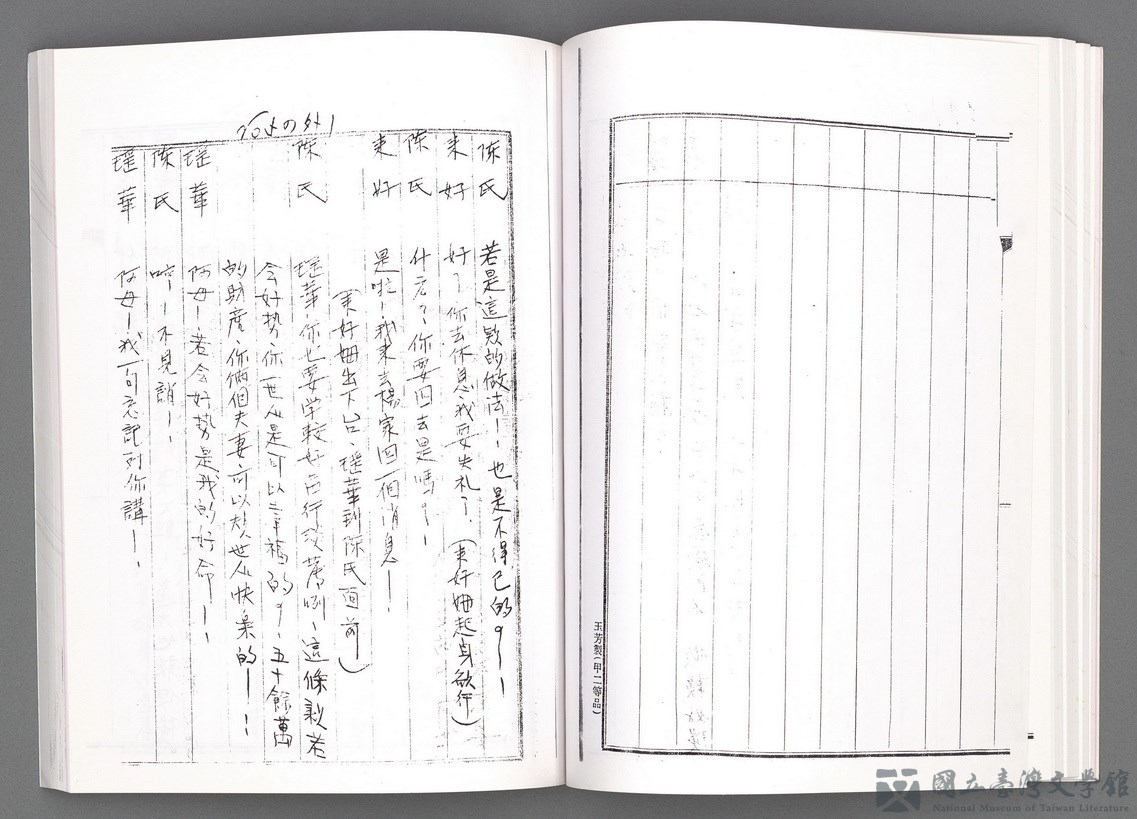 陈氏 若是這欵的做法！、也是不得己的？！！
来好 好了、你去休息我要失礼了、（来好姆起身欲行）
陈氏 什么？、你要回去是嗎？！
来好 是啦！我来去楊家回一個消息！、
（来好姆出下台、瑶華到陈氏面前）
陈氏 瑶華、你也要学較好 這條 若
会好势、你一世人是可以幸福的？！、五十餘萬
的財産、你倆個夫妻可以 世人快樂的！！、
瑶華 阿母！、若会好势是我的好命！！、
陈氏 不見誚！、
瑶華 阿母！我一句忘記対你講！！、
玉芳製(甲二等品)
國立臺灣文學館
National Museum of Taiwan Literature